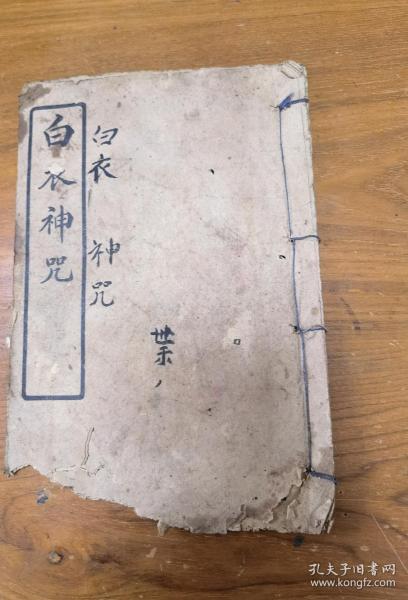 白衣神咒
白衣 神咒
葉
孔夫子旧书网
www.kongfz.com